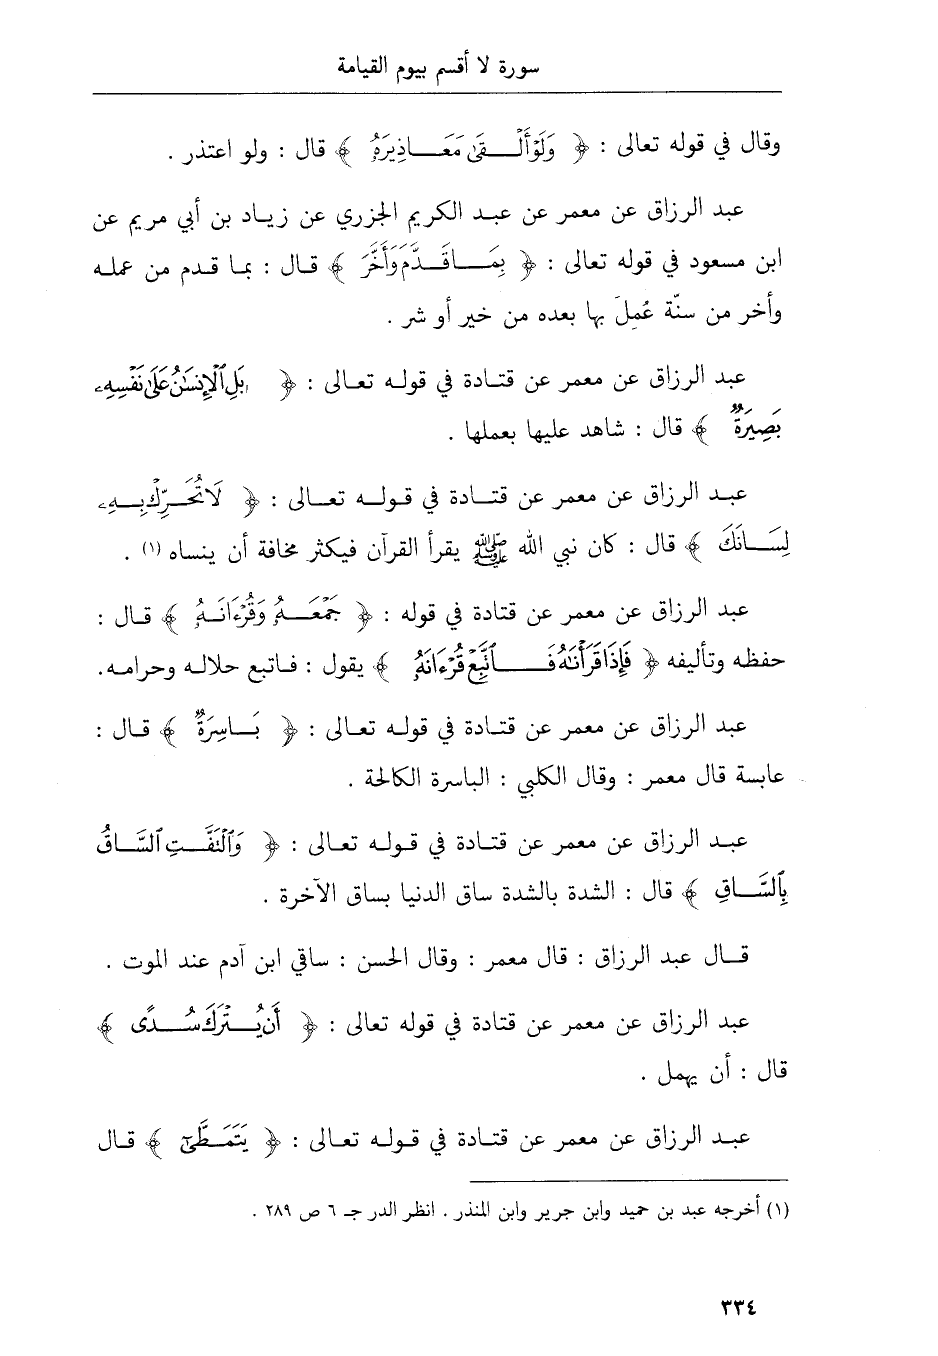 سورة لا أقسم بيوم القيامة
وقال في قوله تعالى : ﴿ وَلَوْ أَلْقَىٰ مَعَاذِيرَهُۥ ﴾ قال : ولو اعتذر .
عبد الرزاق عن معمر عن عبد الكريم الجزري عن زياد بن أبي مريم عن
ابن مسعود في قوله تعالى : ﴿ بِمَا قَدَّمَ وَأَخَّرَ ﴾ قال : بما قدم من عمله
وأخر من سنّة عُمِلَ بها بعده من خير أو شر .
عبد الرزاق عن معمر عن قتادة في قوله تعالى : ﴿ بَلِ ٱلْإِنسَٰنُ عَلَىٰ نَفْسِهِۦ
بَصِيرَةٌ ﴾ قال : شاهد عليها بعملها .
عبد الرزاق عن معمر عن قتادة في قوله تعالى : ﴿ لَا تُحَرِّكْ بِهِۦ
لِسَانَكَ ﴾ قال : كان نبي الله ﷺ يقرأ القرآن فيكثر مخافة أن ينساه (١) .
عبد الرزاق عن معمر عن قتادة في قوله : ﴿ جَمْعَهُۥ وَقُرْءَانَهُۥ ﴾ قال :
حفظه وتأليفه ﴿ فَإِذَا قَرَأْنَٰهُ فَٱتَّبِعْ قُرْءَانَهُۥ ﴾ يقول : فاتبع حلاله وحرامه.
عبد الرزاق عن معمر عن قتادة في قوله تعالى : ﴿ بَاسِرَةٌ ﴾ قال :
عابسة قال معمر : وقال الكلبي : الباسرة الكالحة .
عبد الرزاق عن معمر عن قتادة في قوله تعالى : ﴿ وَٱلْتَفَّتِ ٱلسَّاقُ
بِٱلسَّاقِ ﴾ قال : الشدة بالشدة ساق الدنيا بساق الآخرة .
قال عبد الرزاق : قال معمر : وقال الحسن : ساقي ابن آدم عند الموت .
عبد الرزاق عن معمر عن قتادة في قوله تعالى : ﴿ أَن يُتْرَكَ سُدًى ﴾
قال : أن يهمل .
عبد الرزاق عن معمر عن قتادة في قوله تعالى : ﴿ يَتَمَطَّىٰٓ ﴾ قال
(١) أخرجه عبد بن حميد وابن جرير وابن المنذر . انظر الدر جـ ٦ ص ٢٨٩ .
٣٣٤